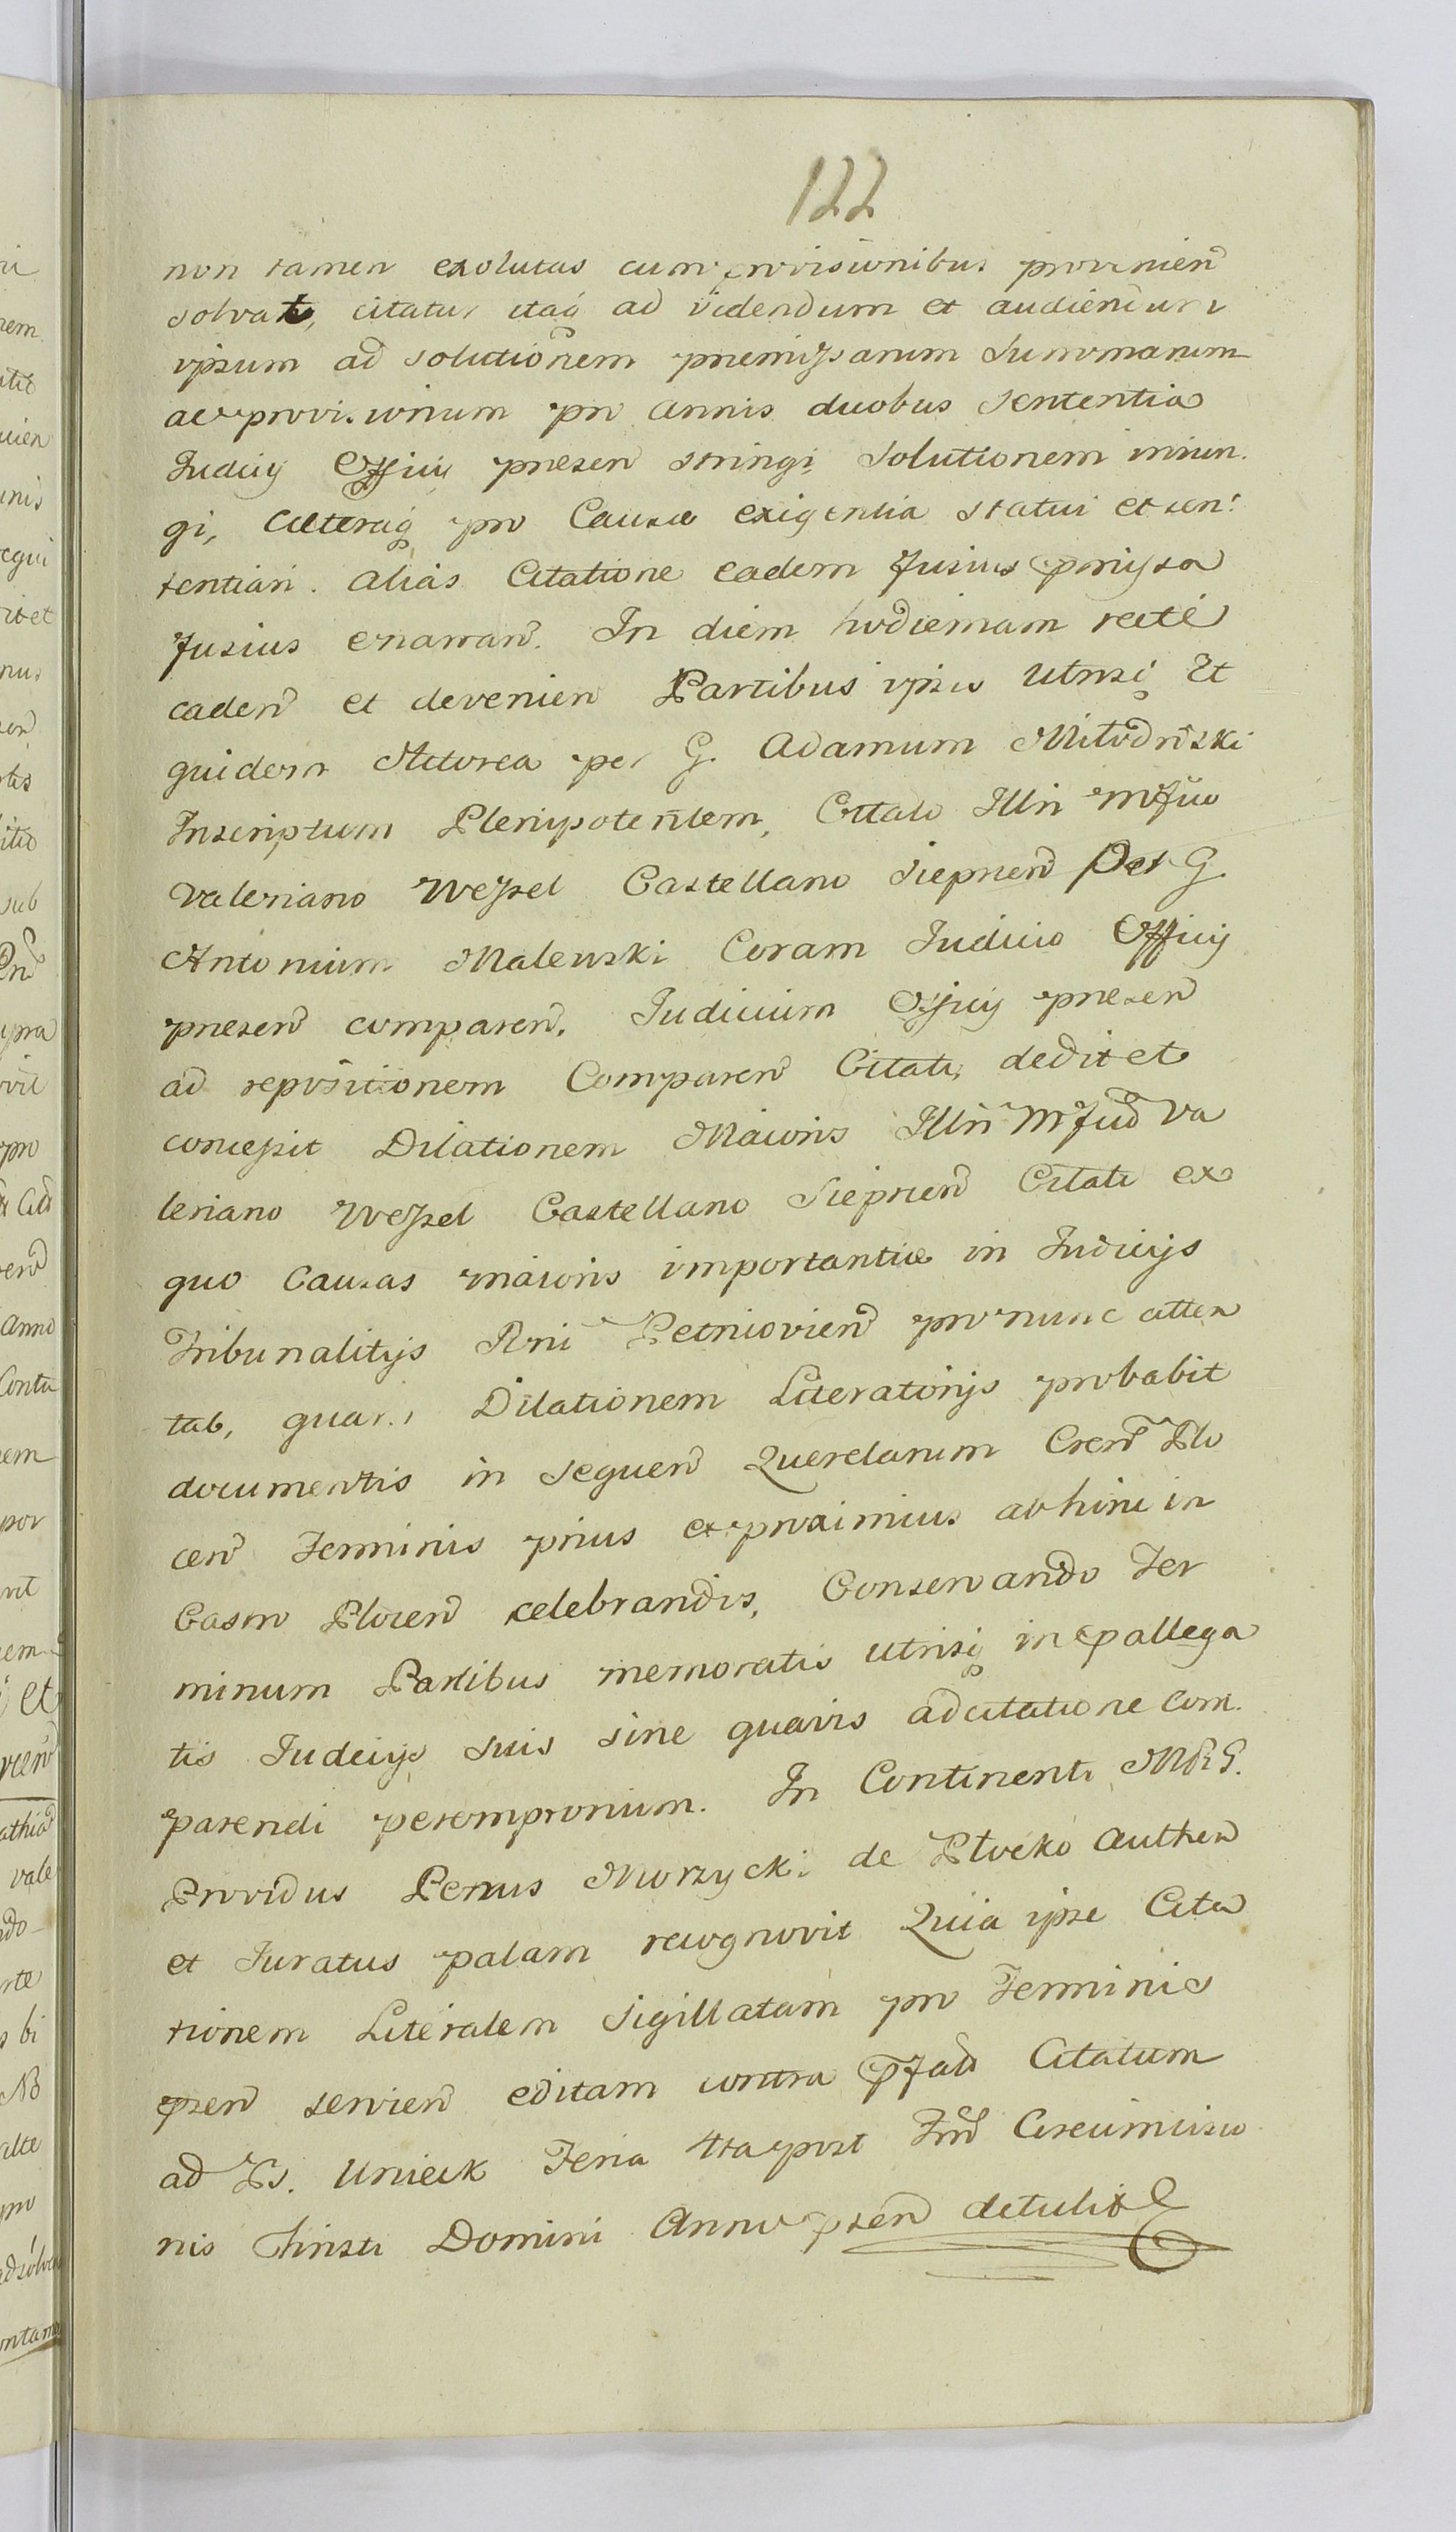 122
non tamen exolutas cum provisionibus provenien
solvat, citatur itaq ad videndum et audiendum
ipsum ad solutionem premissarum Summarum
ac provisionum pro annis duobus Sententia
Iudicij Officij presen stringi, Solutionem iniun
gi, Cæteraq pro Causæ exigentia statui et sen
tentiari. Alias Citatione eadem fusius
fusius enarran. In diem hodiernam recte
caden et devenien Partibus ipsis Utrisq Et
quidem Actorea per G. Adamum Miłodrowski
Inscriptum Plenipotentem, Citato Illri Mfico
Valeriano Wessel Castellano Sieprien Per G.
Antonium Malewski Coram Iudicio Officij
presen comparen. Iudicium Officij presen
ad repositionem Comparen Citati, dedit et
concessit Dilationem Maioris Illri Mfico Va
leriano Wessel Castellano Sieprien Citati ex
quo Causas maioris importantiæ in Iudicijs
Tribunalitijs Rni Petriovien pro nunc atten
tab, quam Dilationem Literatorijs probabit
documentis in sequen Querelarum Cren Plo
cen Terminis prius et proximius abhinc in
Castro Plocen celebrandis, Conservando Ter
minum Partibus memoratis Utrisq in pallega
tis Iudicijs suis sine quavis adcitatione Com
parendi peremptorium. In Continenti
Providus Petrus Morzycki de Płocko Authen
et Iuratus palam recognovit Quia ipse Cita
tionem Literalem Sigillatam pro Terminis
psen servien editam contra Pfatt Citatum
ad Unieck Feria 4ta post Circumcisio
nis Christi Domini Anno psen detulit